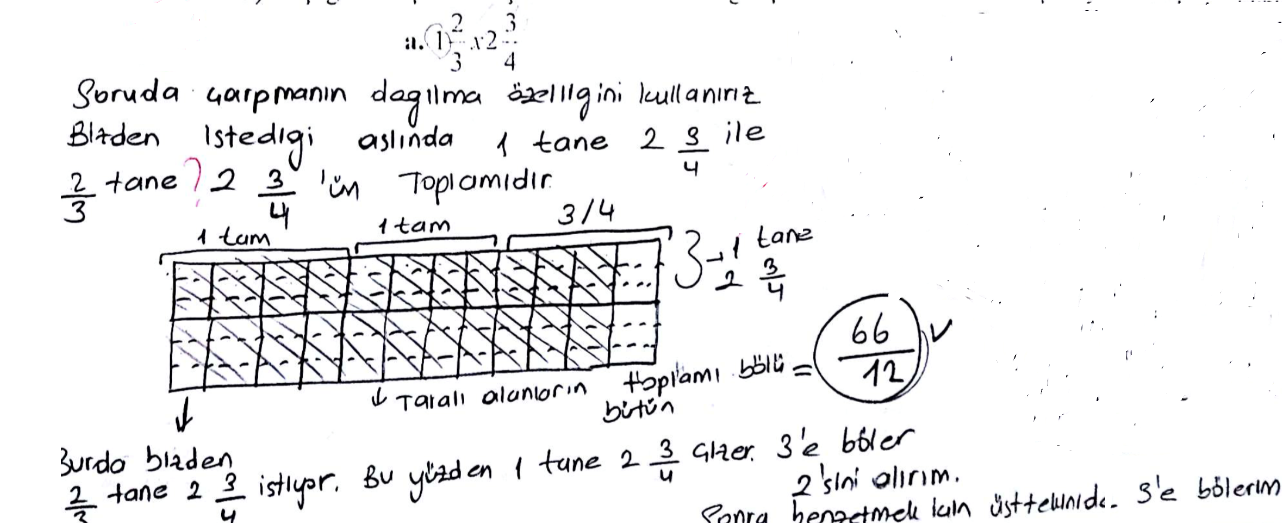 a. 1 2/3 x 2 3/4
Soruda çarpmanın dagılma özelligini kullanırız
Bizden istedigi aslında 1 tane 2 3/4 ile
2/3 tane ? 2 3/4 'ün Toplamıdır
1 tam 1 tam 3/4
→ 1 tane
2 3/4
Taralı alanların toplamı bölü bütün = 66/12
Burda bizden
2/3 tane 2 3/4 istiyor. Bu yüzden 1 tane 2 3/4 çizer. 3'e böler
2'sini alırım.
Sonra benzetmek için üsttekinide 3'e bölerim